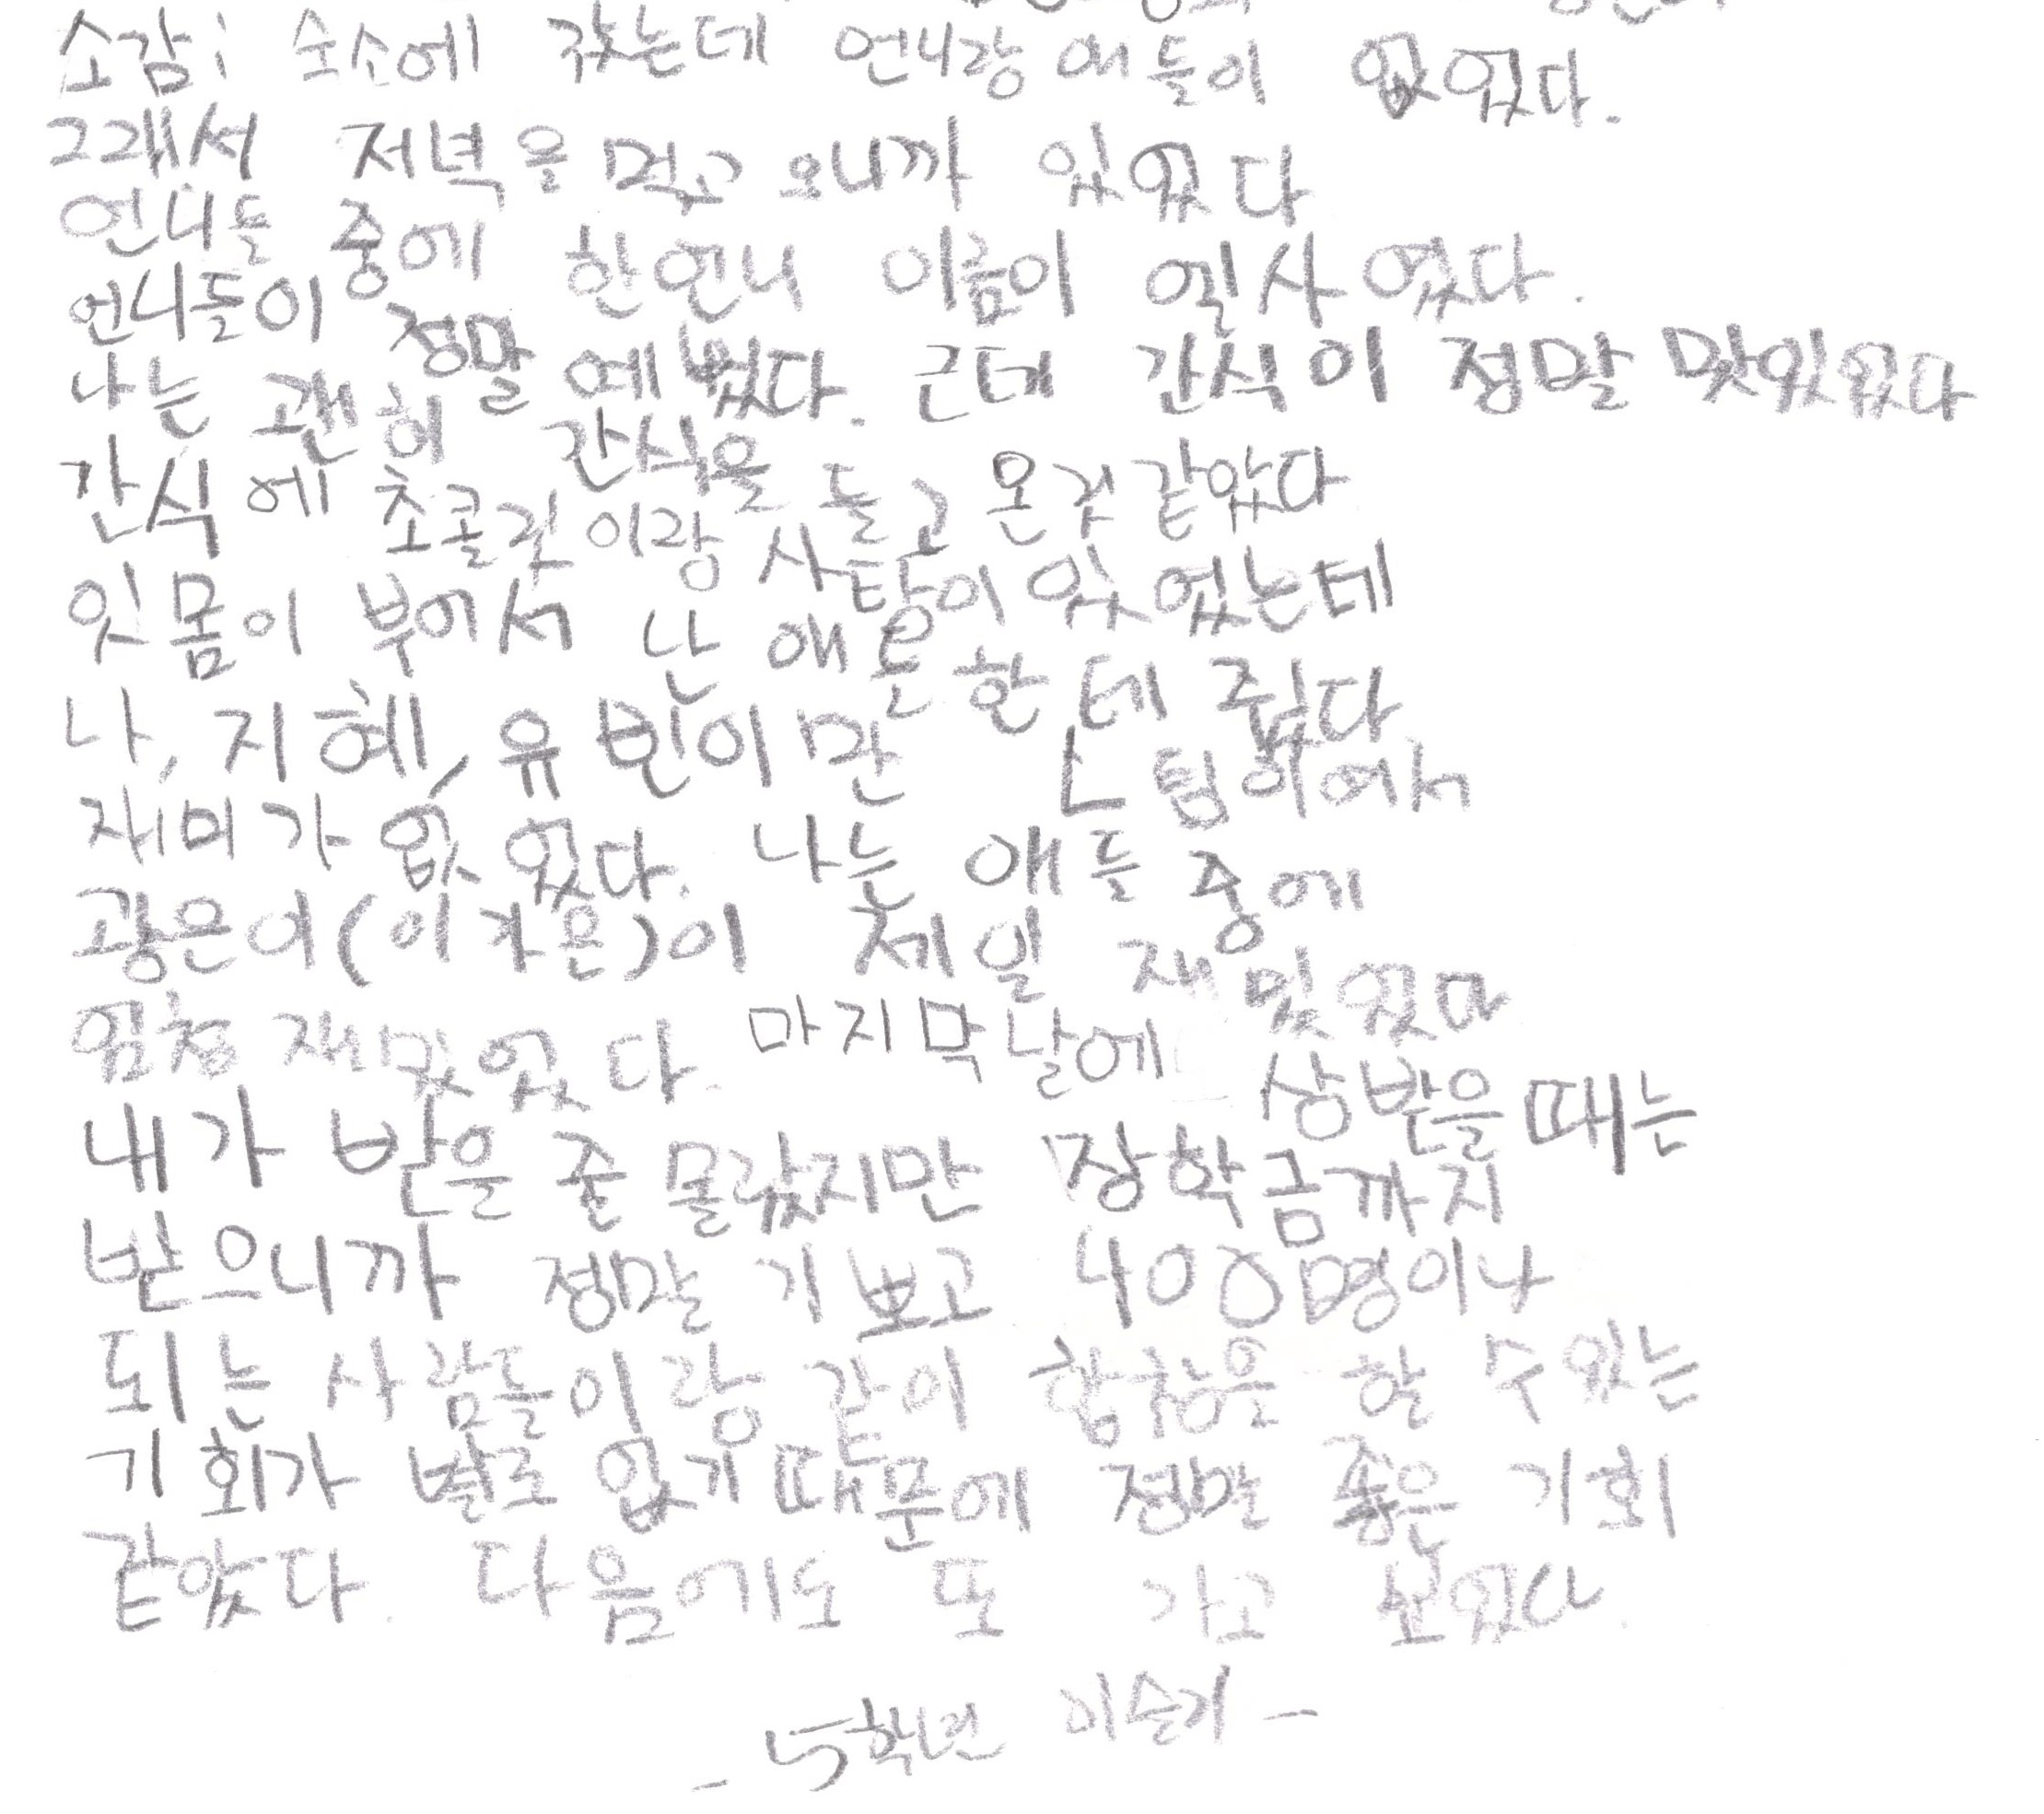 소감: 숙소에 갔는데 언니랑 애들이 없었다.
그래서 저녁을 먹고 오니까 있었다
언니들 중에 한언니 이름이 엘사였다.
언니들이 정말 예뻤다. 근데 간식이 정말 맛있었다
나는 괜히 간식을 들고 온것 같았다
간식에 초콜릿이랑 사탕이 있었는데
잇몸이 부어서 난 애들한테 줬다
나, 지혜, 유빈이만 L팀이여서
재미가 없었다. 나는 애들 중에
광은이(이가은)이 제일 재밌었다
엄청 재밌었다. 마지막날에 상받을때는
내가 받을 줄 몰랐지만 장학금까지
받으니까 정말 기뻐고 400명이나
되는 사람들이랑 같이 합창을 할 수 있는
기회가 별로 없기 때문에 정말 좋은 기회
같았다. 다음에도 또 가고 싶었다.
- 5학년 -